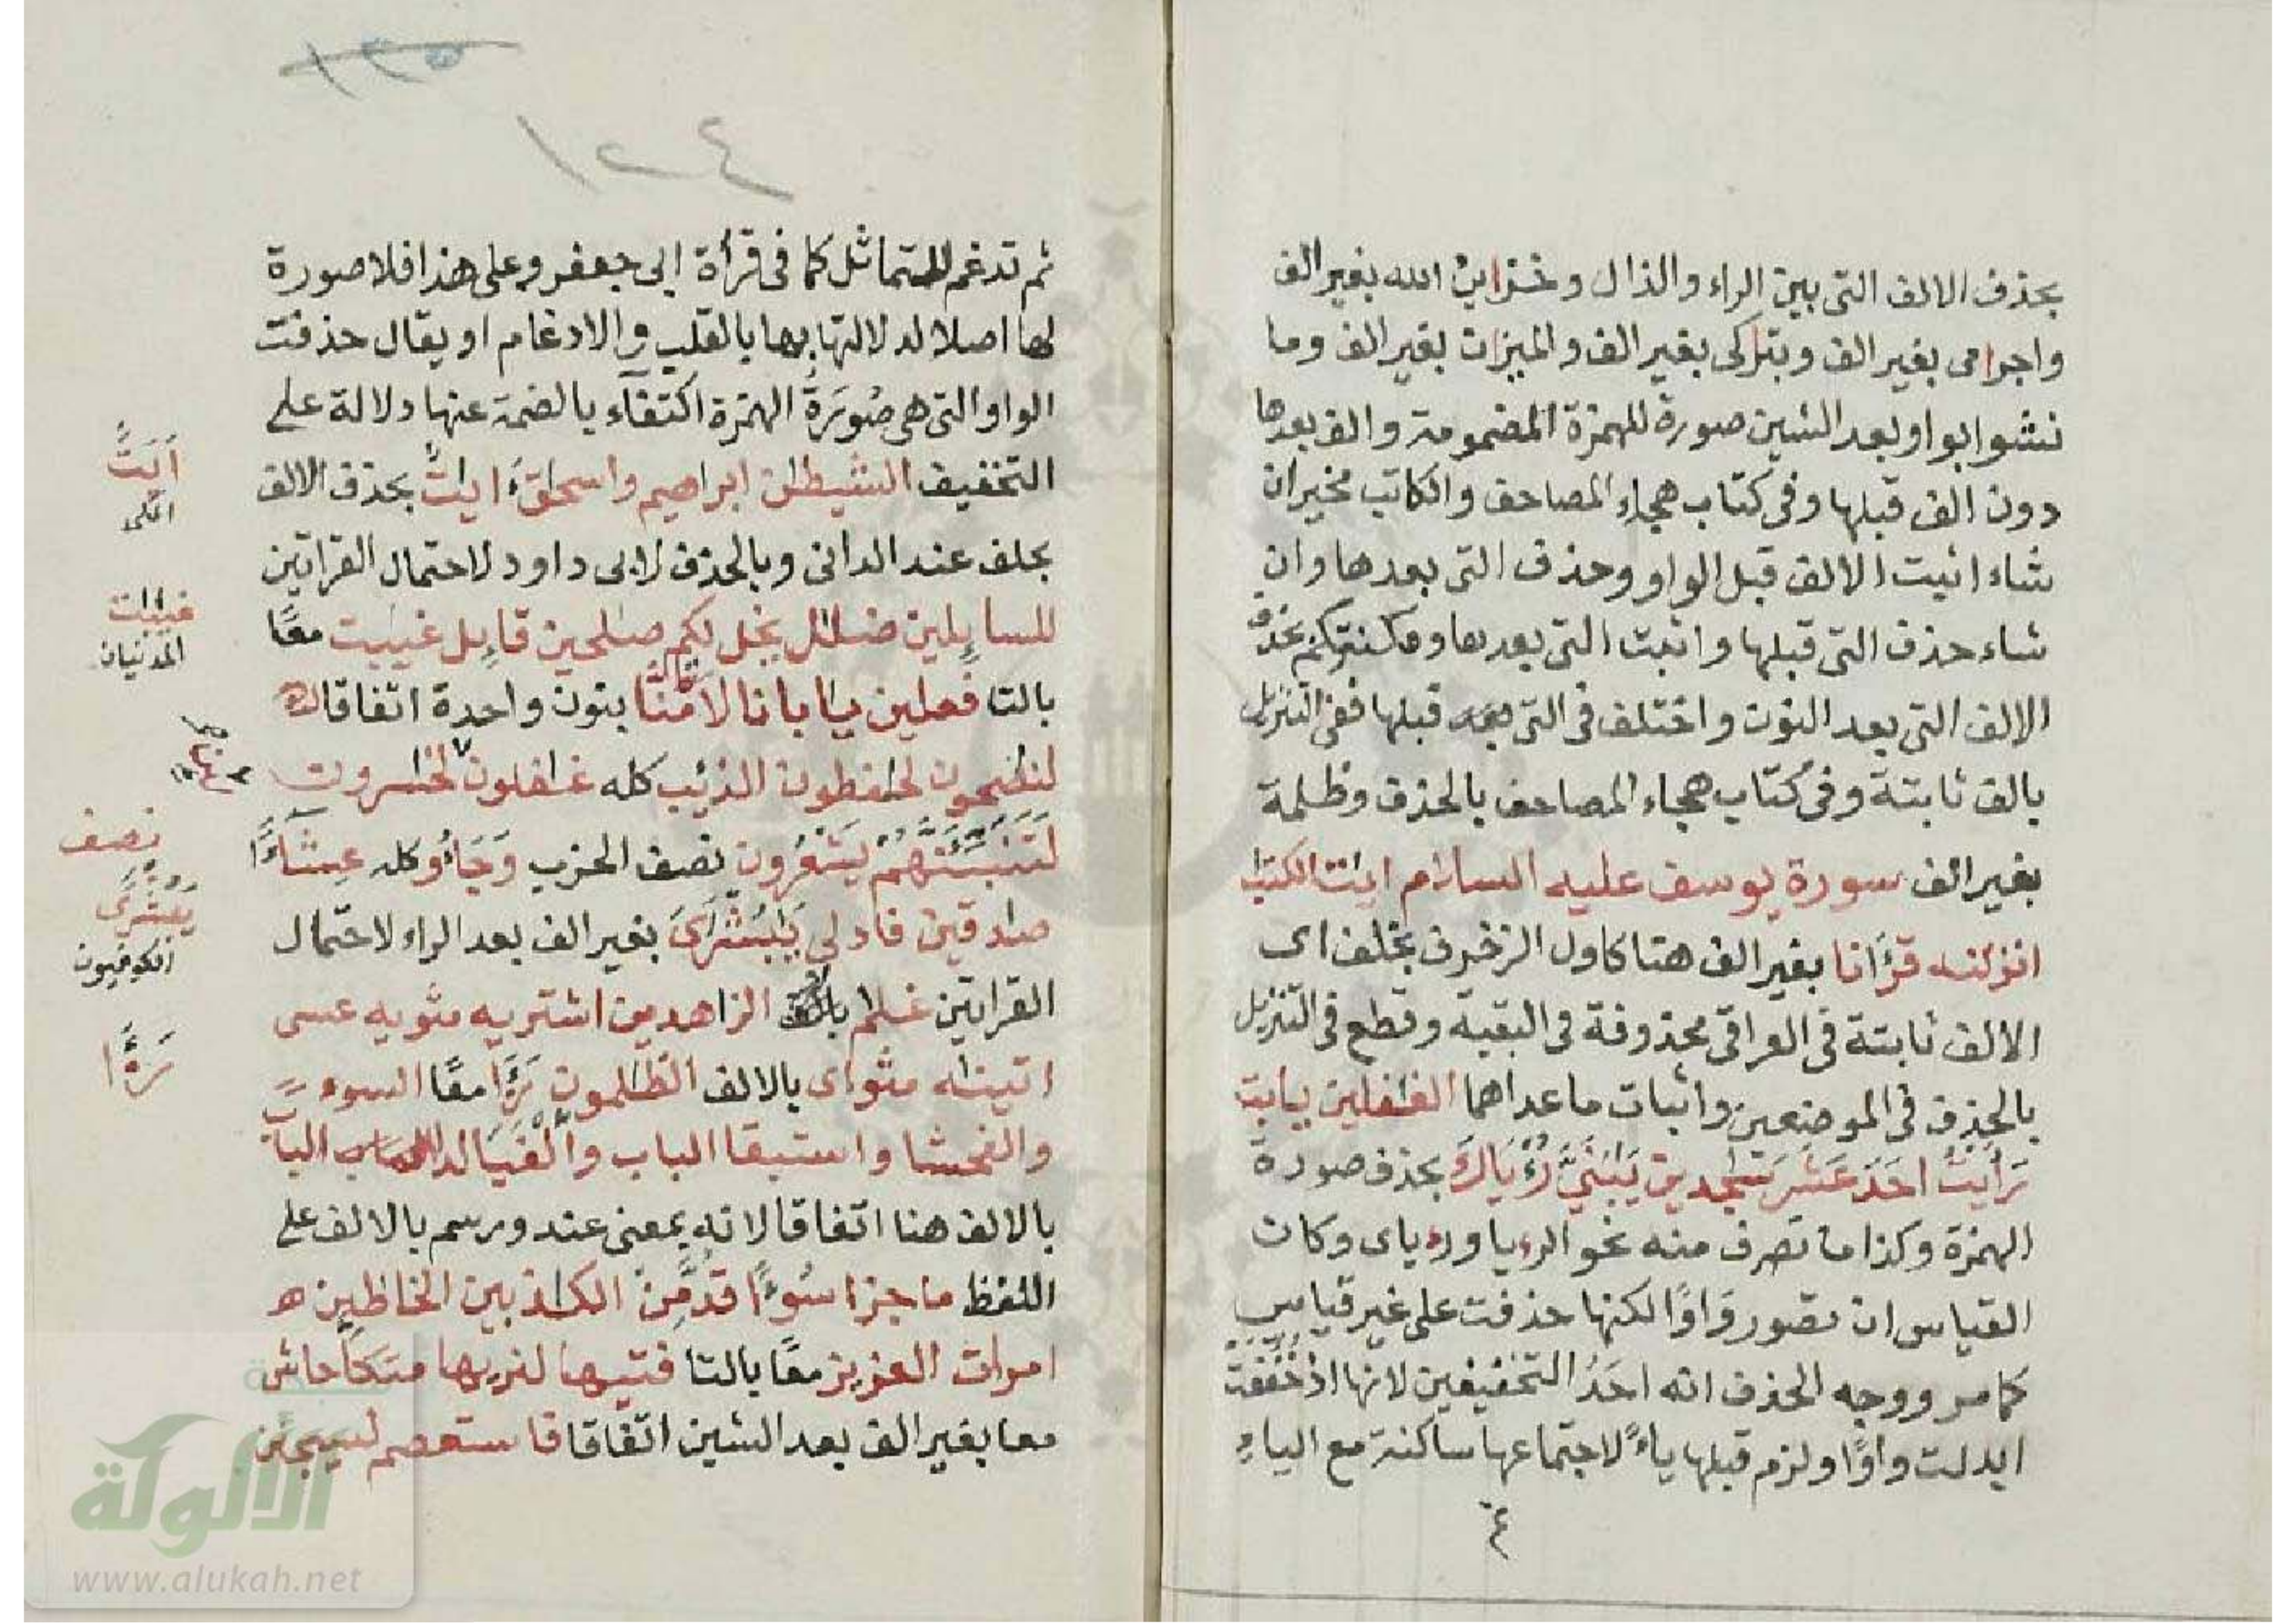 بحذف الالف التي بين الراء والذال وخزاين الله بغير الف
واجرامى بغير الف وبتاركى بغير الف والميزان بغير الف وما
نشوا بواو بعد الشين صورة للهمزة المضمومة والف بعدها
دون الف قبلها وفى كتاب هجاء المصاحف والكاتب مخيران
شاء اثبت الالف قبل الواو وحذف التى بعدها وان
شاء حذف التى قبلها واثبت التى بعدها ومكنتكم بحذف
الالف التى بعد النون واختلف فى التى قبلها ففى التنزيل
بالف ثابتة وفى كتاب هجاء المصاحف بالحذف وظلمة
بغير الف سورة يوسف عليه السلام ايت الكتب
انزلنه قرءانا بغير الف هنا كاول الزخرف بخلف اى
الالف ثابتة فى العراقى محذوفة فى البقية وقطع فى التنزيل
بالحذف فى الموضعين واثبات ماعداهما الغفلين يابت
رَاَيْتُ اَحَدَ عَشَرَ سجدين يبنىّ رُءْيَاكَ بحذف صورة
الهمزة وكذا ما تصرف منه نحو الرءيا ورءياى وكان
القياس ان تصور وَاوًا لكنها حذفت على غير قياس
كما مر ووجه الحذف انه احَدُ التخفيفين لانها اذ خُفِّفت
ابدلت واوًا ولزم قبلها ياءً لاجتماعها ساكنة مع الياء
٤
١٢٥
١٢٤
ثم تدغم للتماثل كما فى قرأة ابى جعفر وعلى هذا فلا صورة
لها اصلا لدلالتها بها بالقلب والادغام او يقال حذفت
الواو التى هى صُورَةُ الهمزة اكتفاء بالضمة عنها دلالة على
التخفيف الشيطن ابراهيم واسحاق ءايت بحذف الالف
بخلف عند الدانى وبالحذف لابى داود لاحتمال القراتين
للسايلين ضلل يخل لكم صلحين قايل غيبت معًا
بالتا فعلين يا بانا لا تامنّا بنون واحدة اتفاقا
لنصحون لحفظون الذئب كله غفلون لخسرون
لَتُنَبِّئَنَّهُمْ يَشْعُرُون نصف الحزب وَجَاءُو كله عِشَاءً
صدقين فادلى يبُشْرَىَ بغير الف بعد الراء لاحتمال
القراتين غلم الزاهدين اشتريه مثويه عسى
اتينه مثواى بالالف الظلمون رَءَا معًا السوء
والفحشا واستبقا الباب واَلْفَيَا لدا الباب
بالالف هنا اتفاقا لانه بمعنى عند ورسم بالالف على
اللفظ ما جزا سُوءًا قُدَّ مِن الكذبين الخاطين
امرات العزيز معًا بالتا فتيها لنريها متكأ حاش
معا بغير الف بعد الشين اتفاقا فاستعصم ليسجنن
اَيَتٌ
المكى
غيابات
المدنيان
نصف
يبُشْرَى
الكوفيون
رَءَا
الالوكة
www.alukah.net